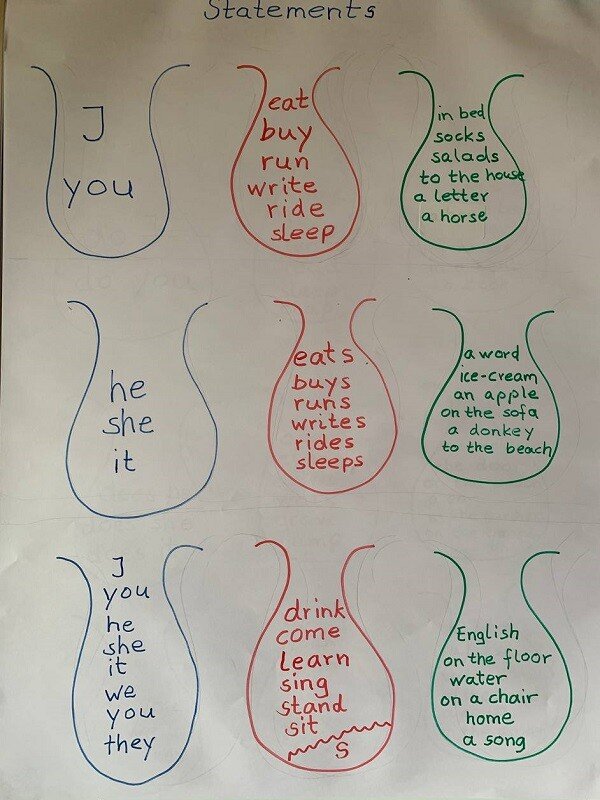 Statements
I
you
eat
buy
run
write
ride
sleep
in bed
socks
salads
to the house
a letter
a horse
he
she
it
eats
buys
runs
writes
rides
sleeps
a word
ice-cream
an apple
on the sofa
a donkey
to the beach
I
you
he
she
it
we
you
they
drink
come
learn
sing
stand
sit
s
English
on the floor
water
on a chair
home
a song